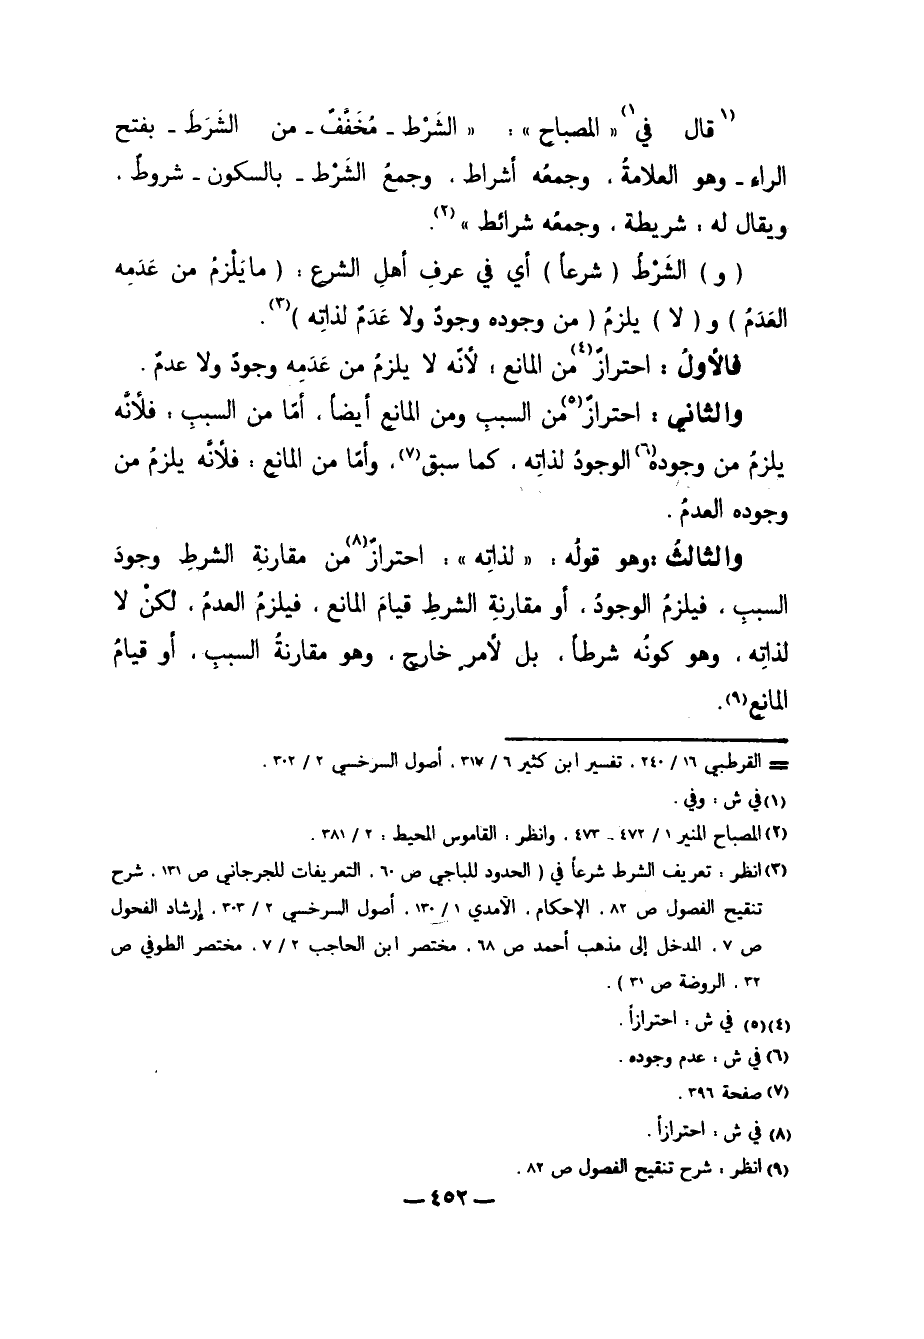 (١ قال في(١) « المصباح » : « الشَرْط - مُخَفَّفٌ - من الشَرَطَ - بفتح
الراء - وهو العلامةُ ، وجمعُه أشراط ، وجمعُ الشَرْط - بالسكون - شروطٌ .
ويقال له : شريطة ، وجمعُه شرائط »(٢).
( و ) الشَرْطُ ( شرعاً ) أي في عرفِ أهلِ الشرع : ( مايَلْزمُ من عَدَمِه
العَدَمُ ) و ( لا ) يلزمُ ( من وجوده وجودٌ ولا عَدَمٌ لذاتِه )(٣).
فالأولُ : احترازٌ(٤)من المانع ؛ لأنَّه لا يلزمُ من عَدَمِه وجودٌ ولا عدمٌ .
والثاني : احترازٌ(٥)من السببِ ومن المانع أيضاً ، أمّا من السببِ ؛ فلأنَّه
يلزمُ من وجودهِ(٦)الوجودُ لذاتِه ، كما سبق(٧)، وأمّا من المانع : فلأنَّه يلزمُ من
وجوده العدمُ .
والثالثُ :وهو قولُه : « لذاتِه » : احترازٌ(٨)من مقارنةِ الشرطِ وجودَ
السببِ ، فيلزمُ الوجودُ ، أو مقارنةِ الشرطِ قيامَ المانع ، فيلزمُ العدمُ ، لكنْ لا
لذاتِه ، وهو كونُه شرطاً ، بل لأمرٍ خارج ، وهو مقارنةُ السببِ ، أو قيامُ
المانع(٩).
= القرطبي ١٦ / ٢٤٠ ، تفسير ابن كثير ٦ / ٣١٧ ، أصول السرخسي ٢ / ٣٠٢ .
(١) في ش : وفي .
(٢) المصباح المنير ١ / ٤٧٢ - ٤٧٣ ، وانظر : القاموس المحيط : ٢ / ٣٨١ .
(٣) انظر : تعريف الشرط شرعاً في ( الحدود للباجي ص ٦٠ ، التعريفات للجرجاني ص ١٣١ ، شرح
تنقيح الفصول ص ٨٢ ، الإحكام ، الآمدي ١ / ١٣٠ ، أصول السرخسي ٢ / ٣٠٣ ، إرشاد الفحول
ص ٧ ، المدخل إلى مذهب أحمد ص ٦٨ ، مختصر ابن الحاجب ٢ / ٧ ، مختصر الطوفي ص
٣٢ ، الروضة ص ٣١ ) .
(٤)(٥) في ش : احترازاً .
(٦) في ش : عدم وجوده .
(٧) صفحة ٣٩٦ .
(٨) في ش : احترازاً .
(٩) انظر : شرح تنقيح الفصول ص ٨٢ .
— ٤٥٢ —